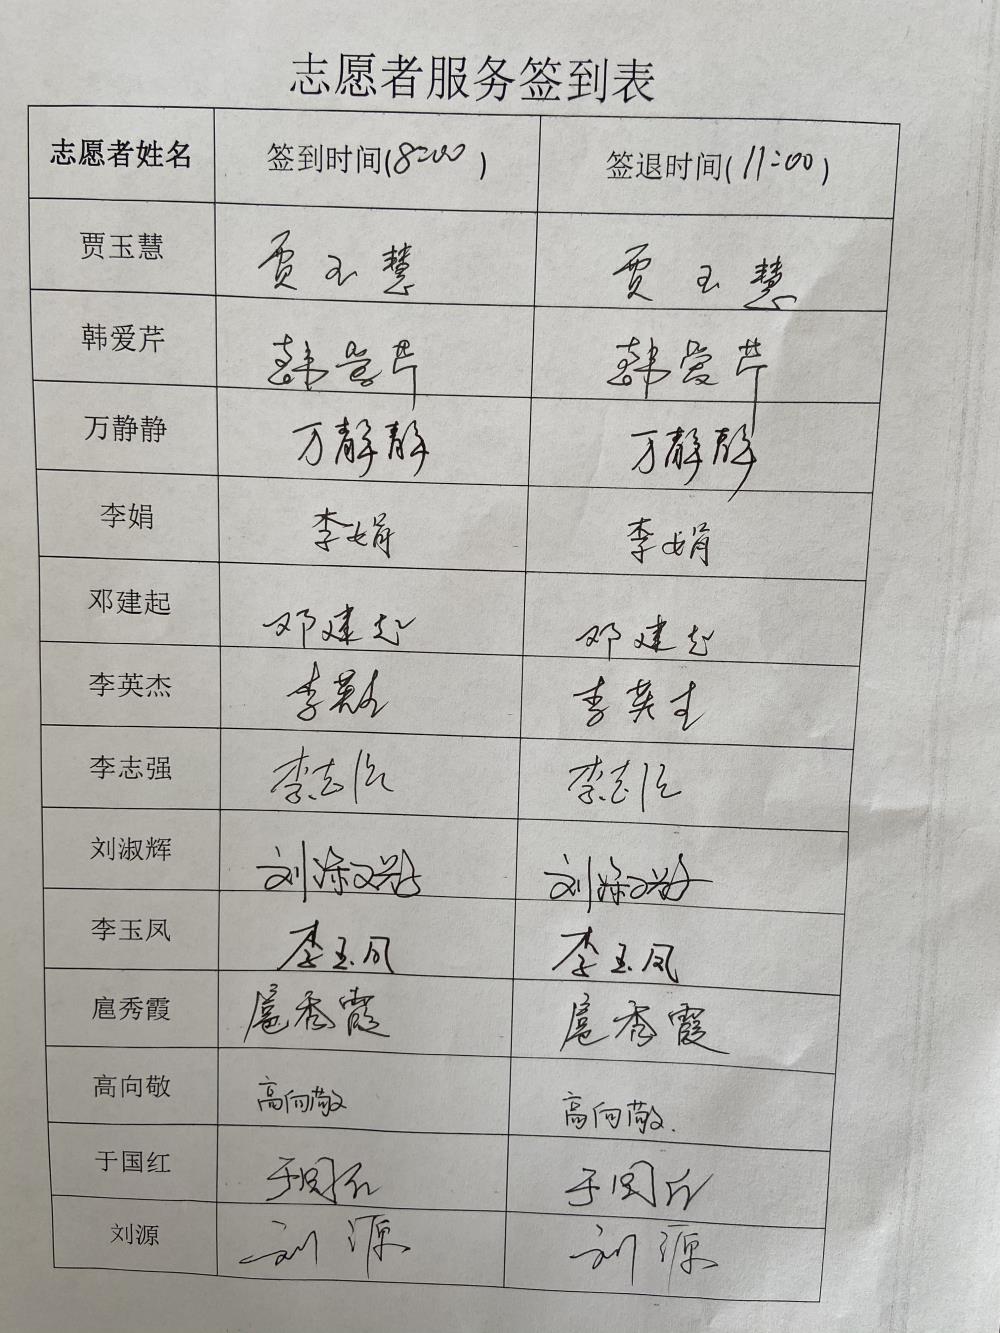 志愿者服务签到表
志愿者姓名 签到时间(8:00 ) 签退时间(11:00)
贾玉慧 贾玉慧 贾玉慧
韩爱芹 韩爱芹 韩爱芹
万静静 万静静 万静静
李娟 李娟 李娟
邓建起 邓建起 邓建起
李英杰 李英杰 李英杰
李志强 李志强 李志强
刘淑辉 刘淑辉 刘淑辉
李玉凤 李玉凤 李玉凤
扈秀霞 扈秀霞 扈秀霞
高向敬 高向敬 高向敬.
于国红 于国红 于国红
刘源 刘源 刘源